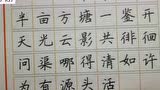 半亩方塘一鉴开
天光云影共徘徊
问渠哪得清如许
为有源头活